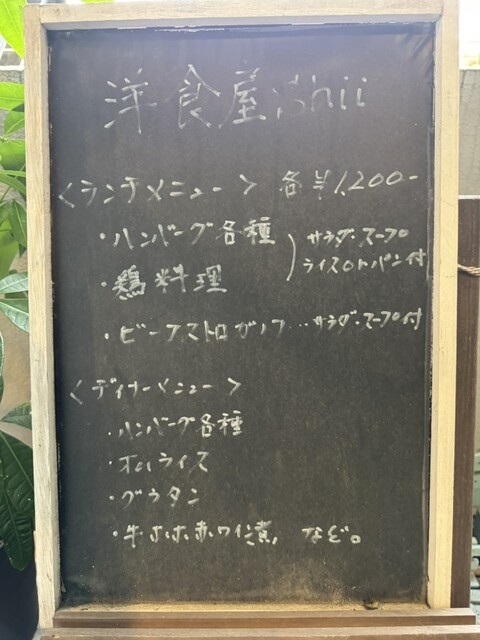 洋食屋Shii
<ランチメニュー> 各¥1,200-
・ハンバーグ各種
・鶏料理
サラダ・スープ
ライスorパン付
・ビーフストロガノフ…サラダ・スープ付
<ディナーメニュー>
・ハンバーグ各種
・オムライス
・グラタン
・牛ホホ赤ワイン煮, など。